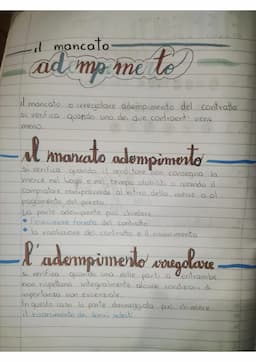 il mancato
adempimento
il mancato o irregolare adempimento del contratto
si verifica quando uno dei due contraenti viene
meno.
il mancato adempimento
si verifica quando il venditore non consegna la
merce nel luogo e nel tempo stabiliti o quando il
compratore non provvede al ritiro della merce o al
pagamento del prezzo.
La parte adempiente può chiedere
l'esecuzione forzata del contratto
la risoluzione del contratto e il risarcimento
l'adempimento irregolare
si verifica quando una delle parti o entrambe
non rispettano integralmente alcune condizioni di
importanza non essenziale.
In questo caso la parte danneggiata può chiedere
il risarcimento dei danni subiti